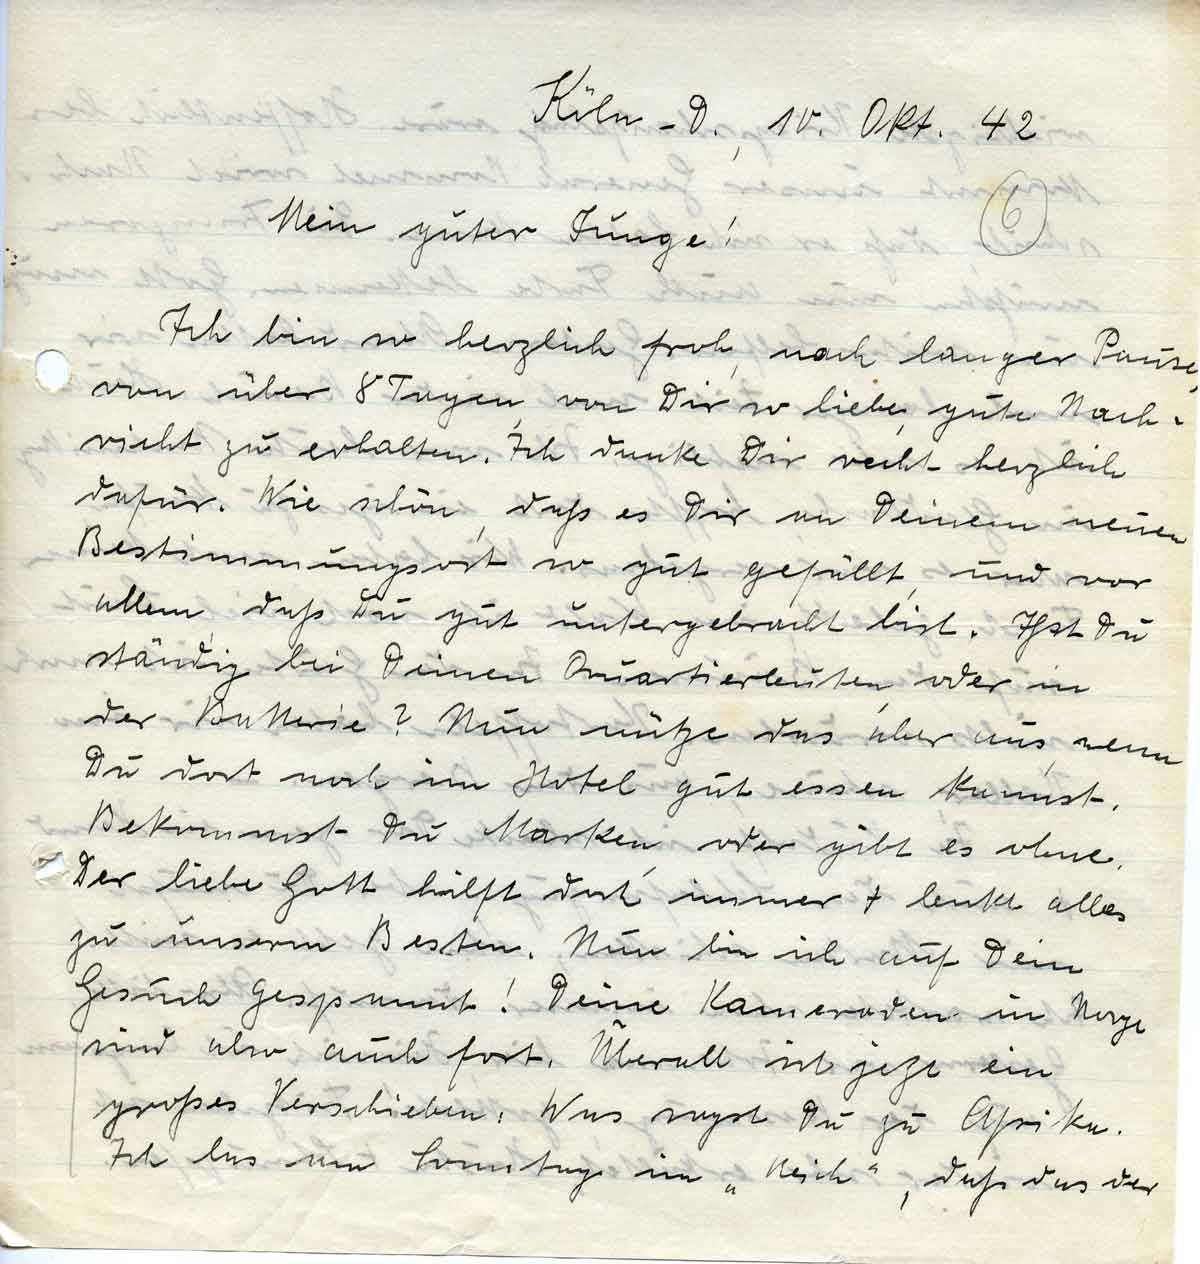 Köln-D., 10. Okt. 42
6
Mein guter Junge!
Ich bin so herzlich froh, nach langer Pause,
von über 8 Tagen, von Dir so liebe, gute Nach-
richt zu erhalten. Ich danke Dir recht herzlich
dafür. Wie schön, daß es Dir an Deinem neuen
Bestimmungsort so gut gefällt, und vor
allem daß Du gut untergebracht bist. Ißt Du
ständig bei Deinen Quartierleuten, oder in
der Batterie? Nun nütze das aber aus, wenn
Du dort noch im Hotel gut essen kannst.
Bekommst Du Marken, oder gibt es ohne.
Der liebe Gott hilft doch immer + lenkt alles
zu unserm Besten. Nun bin ich auf Dein
Gesuch gespannt! Deine Kameraden in Norge
sind also auch fort. Überall ist jetzt ein
großes Verschieben. Was sagst Du zu Afrika.
Ich las am Sonntag im „Reich“, daß das der